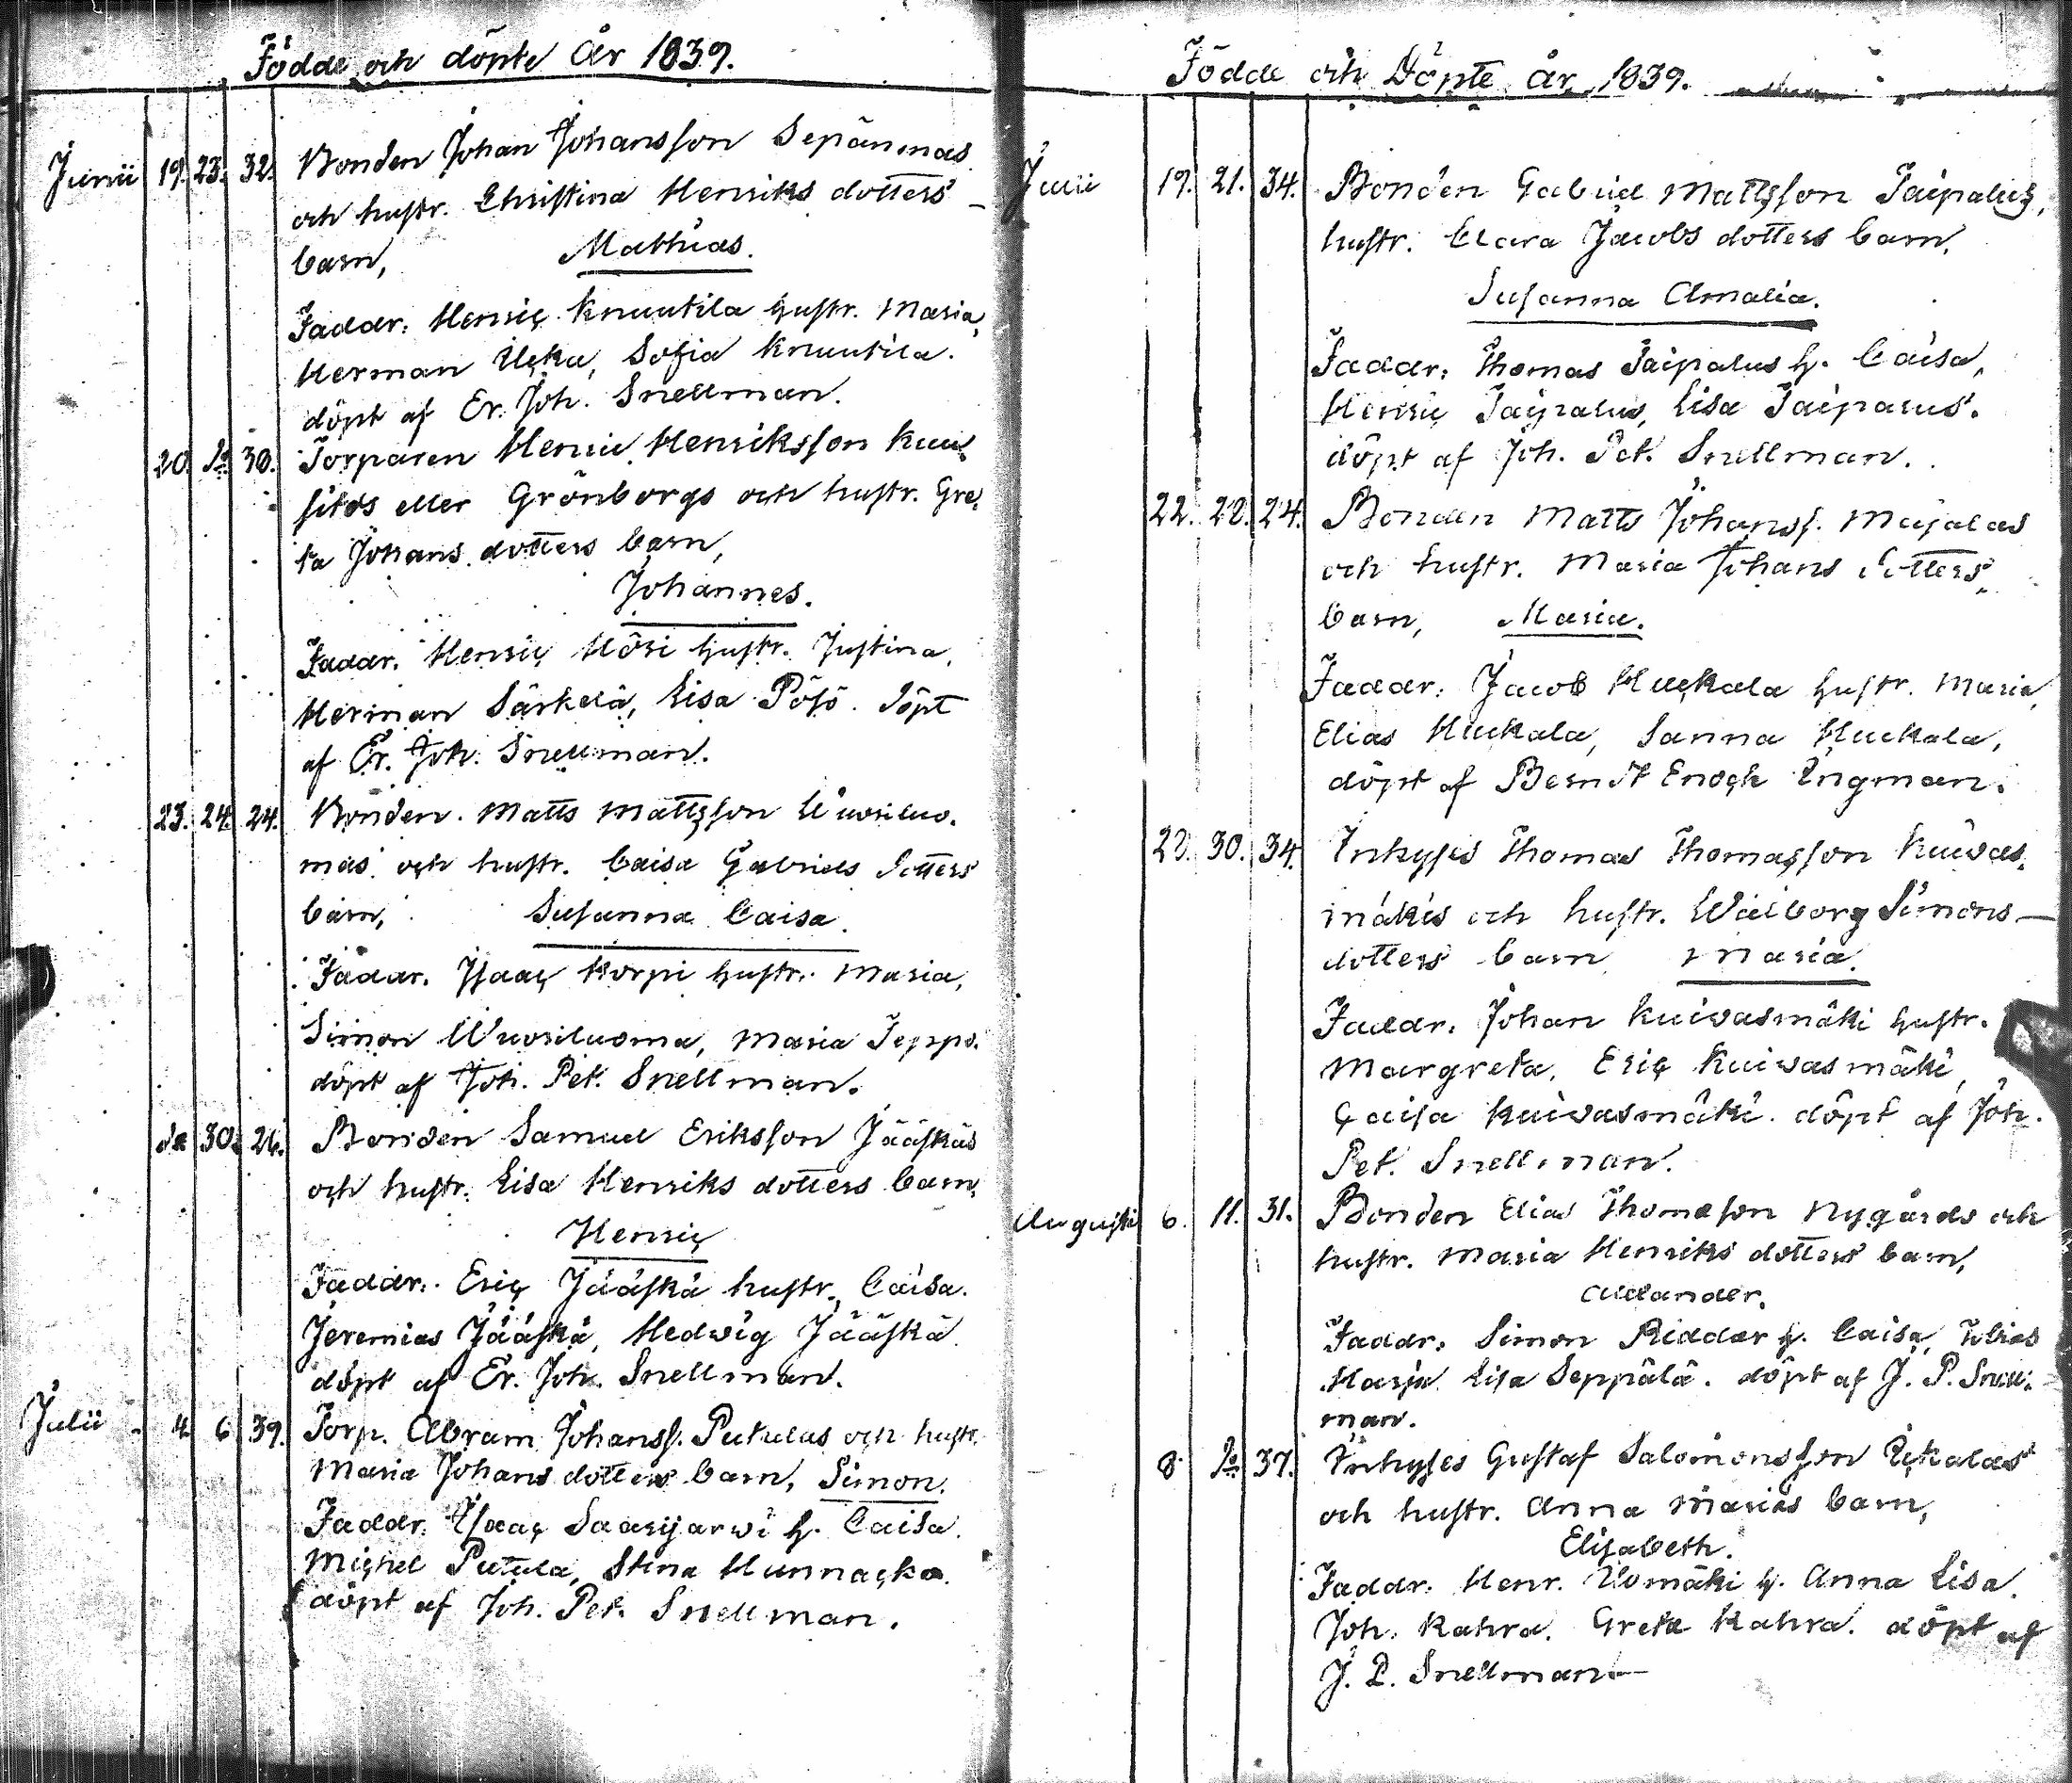 Födde och döpte År 1839.
Junii 19. 23. 32. Bonden Johan Johansson Sepänmas
och hustr. Christina Henriks dotters
barn, Mathias.
Faddr: Henric Knuutila hustr. Maria,
Herman Ilcka, Sofia Knuutila.
döpt af Er. Joh. Snellman.
20. do 30. Torparen Henric Henriksson Kuu-
sitos eller Grönborgs och hustr. Gre-
ta Johans dotters barn,
Johannes.
Faddr. Henric Köri hustr. Justina,
Herman Särkelä, Lisa Pösö. döpt
af Er. Joh. Snellman.
23. 24. 24. Bonden Matts Mattsson Wuoriluo-
mas och hustr. Caisa Gabriels dotters
barn, Susanna Caisa.
Faddr. Isaac Korpi hustr. Maria,
Simon Wuoriluoma, Maria Jeppo.
döpt af Joh. Pet. Snellman.
do 30. 26. Bonden Samuel Eriksson Jääskäs
och hustr. Lisa Henriks dotters barn,
Henric
Faddr. Eric Jääskä hustr. Caisa.
Jeremias Jääskä, Hedwig Jääskä.
döpt af Er. Joh. Snellman.
Julii 4. 6. 39. Torp. Abram Johanss. Putulas och hustr.
Maria Johans dotters barn, Simon.
Faddr. Isaac Saarijarwi h. Caisa.
Michel Putula, Stina Hunnacko.
döpt af Joh. Pet. Snellman.
Födde och Döpte år 1839.
Julii 19. 21. 34. Bonden Gabriel Mattsson Taipalus,
hustr. Clara Jacobs dotters barn,
Susanna Amalia.
Faddr: Thomas Taipalus h. Caisa,
Henric Taipalus, Lisa Taipalus.
döpt af Joh. Pet. Snellman.
22. 28. 24. Bonden Matts Johanss. Marjalas
och hustr. Maria Johans dotters
barn, Maria.
Faddr: Jacob Huckala hustr. Maria,
Elias Huckala, Sanna Huckala,
döpt af Berndt Enoch Ingman.
28. 30. 34. Inhyses Thomas Thomasson Kuiwas-
mäkis och hustr. Walborg Simons-
dotters barn Maria.
Faddr. Johan Kuiwasmäki hustr.
Margreta, Eric Kuiwasmäki,
Caisa Kuiwasmäki. döpt af Joh.
Pet. Snellman.
Augusti 6. 11. 31. Bonden Elias Thomasson Nygårds och
hustr. Maria Henriks dotters barn,
Aleander.
Faddr: Simon Riddar h. Caisa, Tobias
Harju Lisa Seppälä. döpt af J. P. Snell-
man.
8. do 37. Inhyses Gustaf Salomonsson Rekalas
och hustr. Anna Marias barn,
Elisabeth.
Faddr: Henr. Uomäki h. Anna Lisa.
Joh. Kahra. Greta Kahra. döpt af
J. P. Snellman